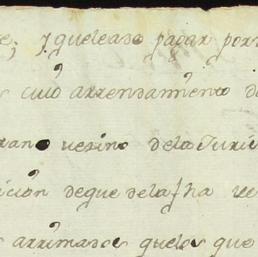 e; y quelease pagar por
s cuio arrensamiento d
rano uesino dela Juri
icion deque dela fha ue
s arrimados quelos que